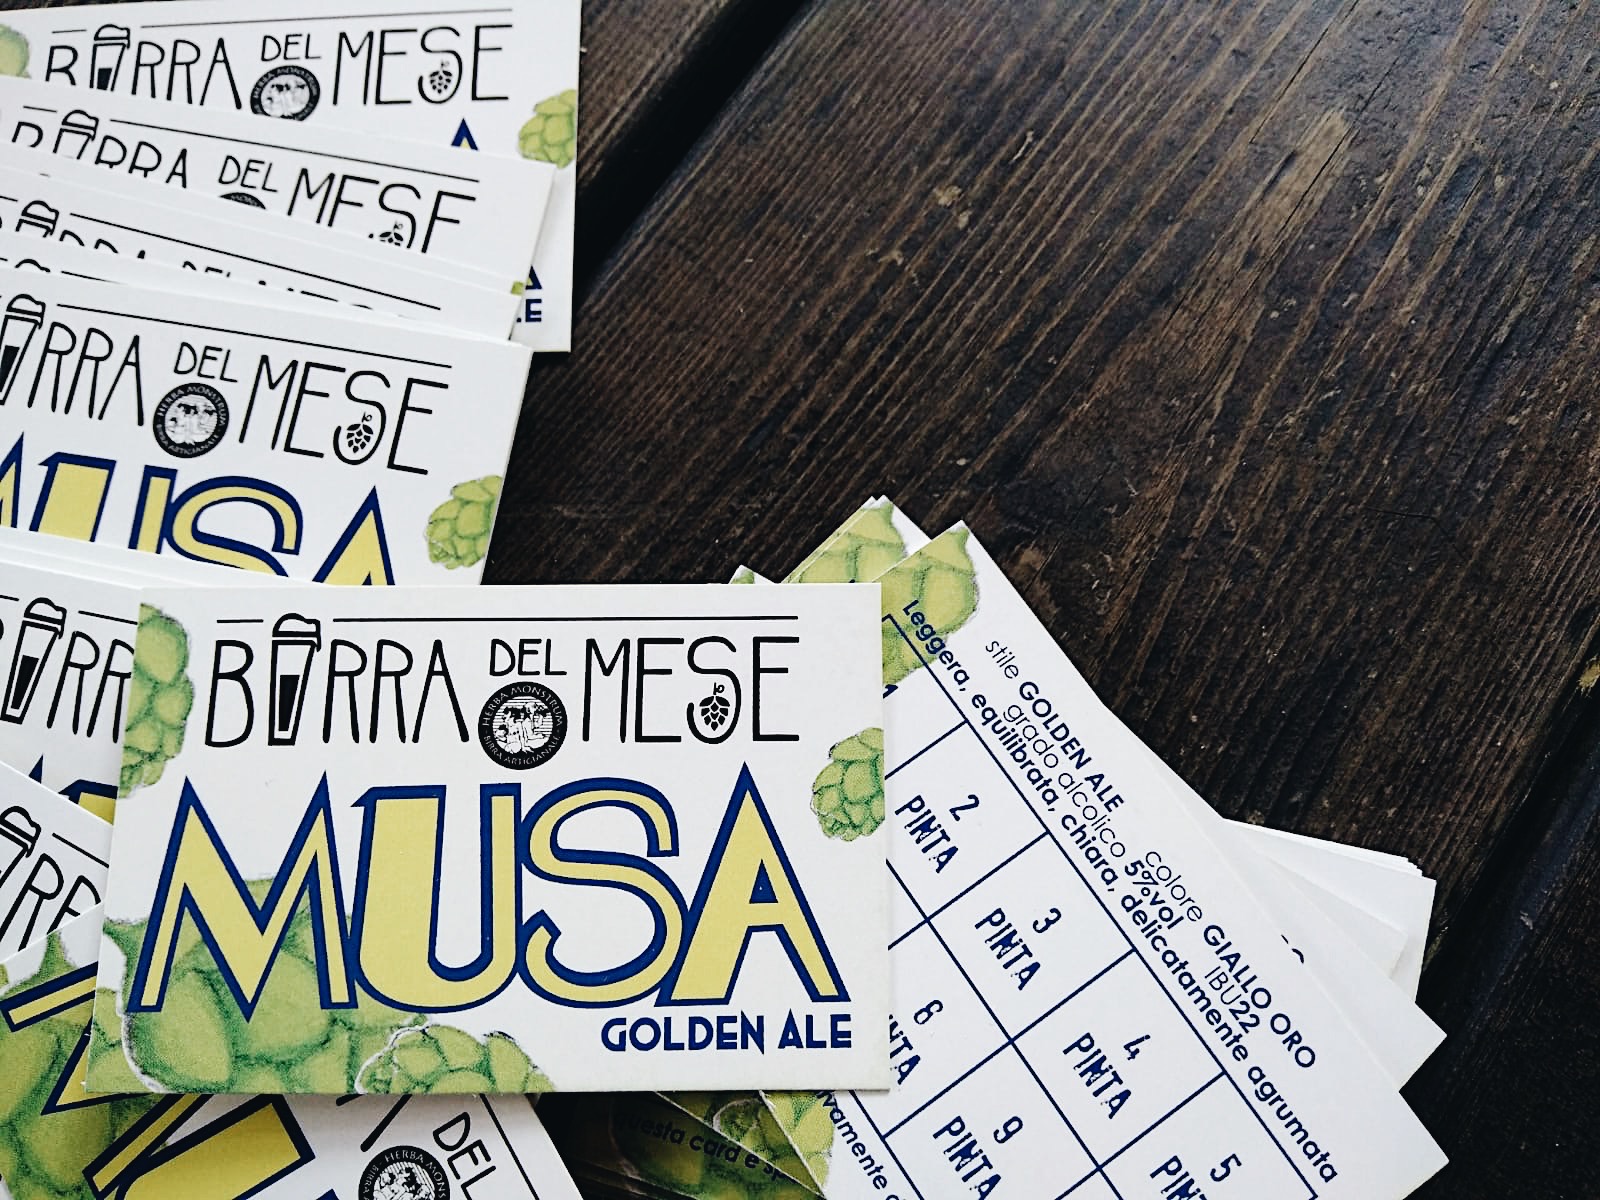 BIRRA DEL MESE
BIRRA DEL MESE
BIRRA DEL MESE
HERBA MONSTRUM
BIRRA ARTIGIANALE
MUSA
BIRRA DEL MESE
HERBA MONSTRUM
BIRRA ARTIGIANALE
MUSA
GOLDEN ALE
stile GOLDEN ALE
grado alcolico 5%vol
colore GIALLO ORO
IBU22
Leggera, equilibrata, chiara, delicatamente agrumata
2
PINTA
3
PINTA
4
PINTA
5
6
9
PINTA
DEL